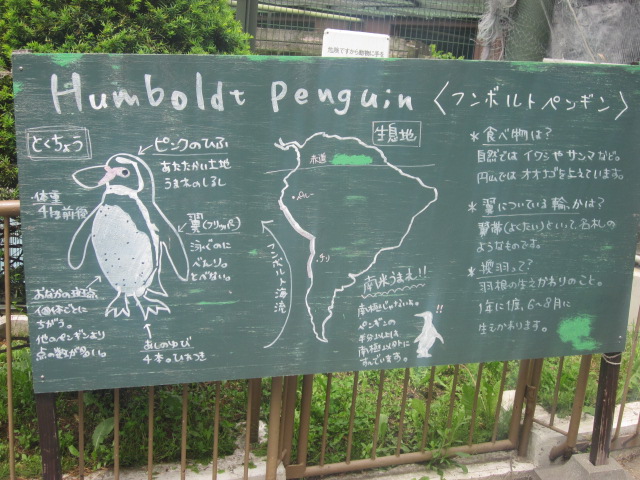 危険ですから動物に手を
Humboldt Penguin 〈フンボルトペンギン〉
とくちょう
ピンクのひふ
あたたかい土地
うまれのしるし
体重
4kg前後
翼(フリッパー)
泳ぐのに
べんり。
とべない。
おなかの斑点
個体ごとに
ちがう。
他のペンギンより
点の数が多い。
あしのゆび
4本。
生息地
赤道
ペルー
チリ
フンボルト海流
南米うまれ!!
南極じゃないよ。
ペンギンの
半分以上は
南極以外に
すんでいます。
!!
* 食べ物は?
自然では イワシや サンマなど。
円山では オオナゴを与えています。
* 翼についている輪、かは?
翼帯(よくたい)といって、名札の
ようなものです。
* 換羽って?
羽根の生えかわりのこと。
1年に1度、6〜8月に
生えかわります。